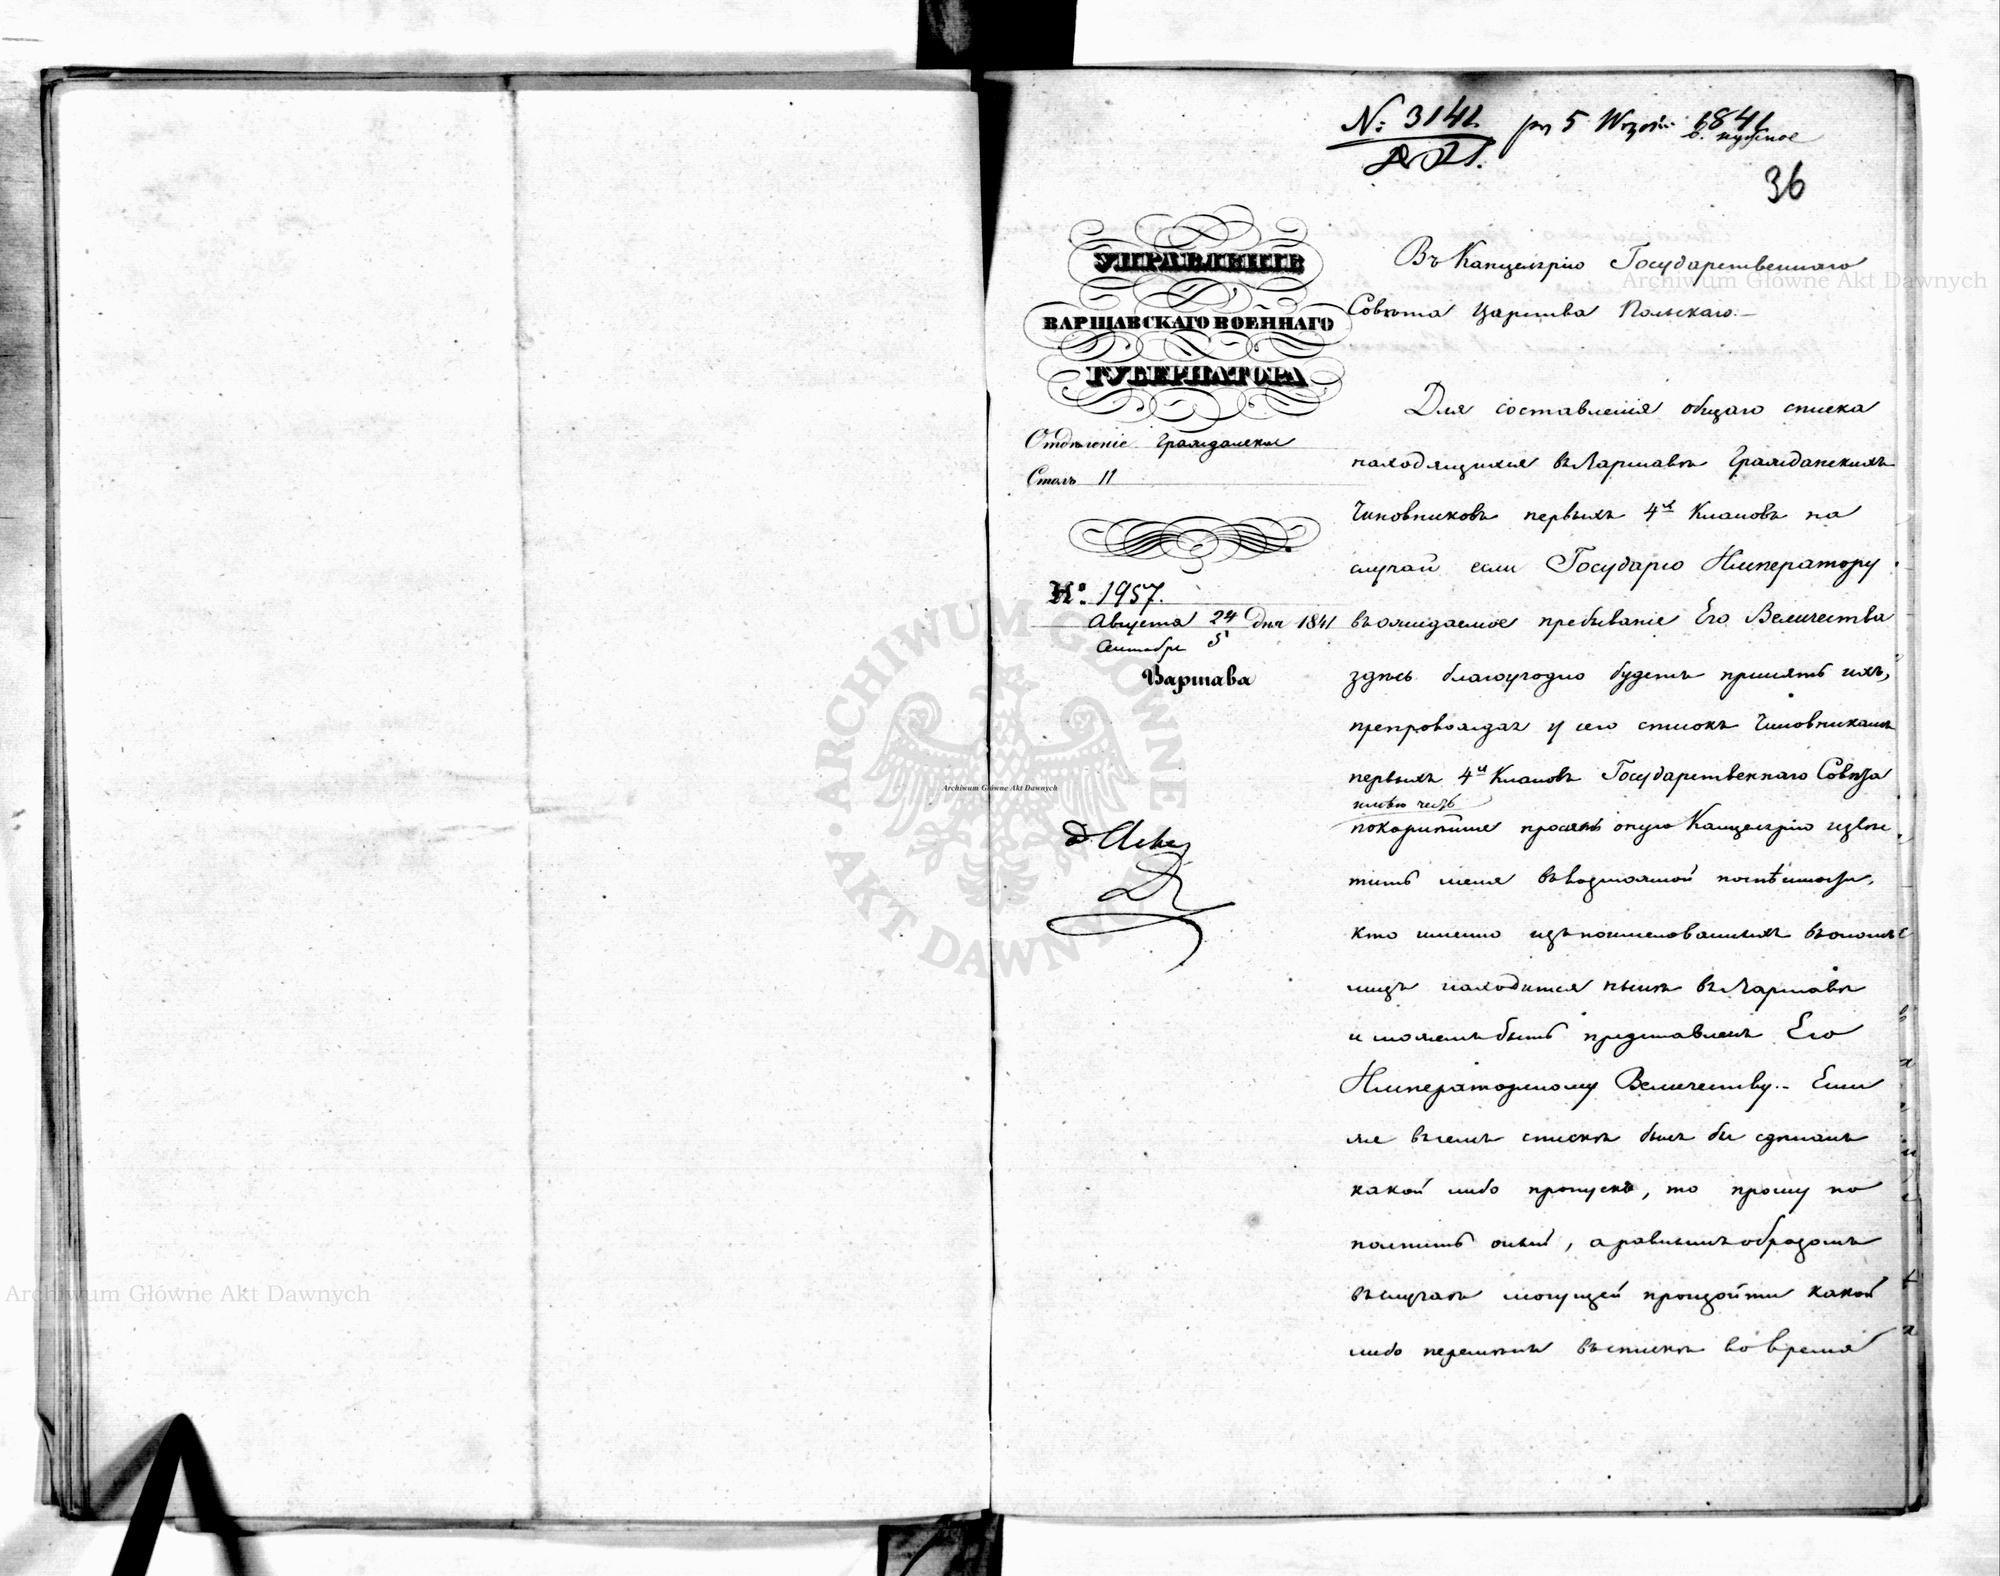 № 3141 pr 5 1841
в. нужное
36
УПРАВЛЕНІЕ
ВАРШАВСКАГО ВОЕННАГО
ГУБЕРНАТОРА
Отдѣленіе Гражданское
Столъ II
№. 1957.
Августа 24 дня 1841
Сентября 5
Варшава
Въ Канцелярію Государственнаго
Совѣта Царства Польскаго.
Для составленія общаго списка
находящихся въ Варшавѣ Гражданскихъ
Чиновниковъ первыхъ 4х Классовъ на
случай если Государю Императору
въ ожидаемое пребываніе Его Величества
здѣсь благоугодно будетъ принять ихъ,
препровождая у сего списокъ Чиновникамъ
первыхъ 4х Классовъ Государственнаго Совѣта
имѣю честь
покорнѣйше просить оную Канцелярію извѣс
тить меня въ возможной поспѣшности,
кто именно изъ поименованныхъ въ ономъ
лицъ находится нынѣ въ Варшавѣ
и можетъ быть представленъ Его
Императорскому Величеству.. Если
же въ семъ спискѣ былъ бы сдѣланъ
какой либо пропускъ, то прошу по
полнить оный, а равнымъ образомъ
въ случаѣ могущей произойти какой
либо перемѣны въ спискѣ во время
Archiwum Główne Akt Dawnych
Archiwum Główne Akt Dawnych
Archiwum Główne Akt Dawnych
ARCHIWUM GŁÓWNE AKT DAWNYCH